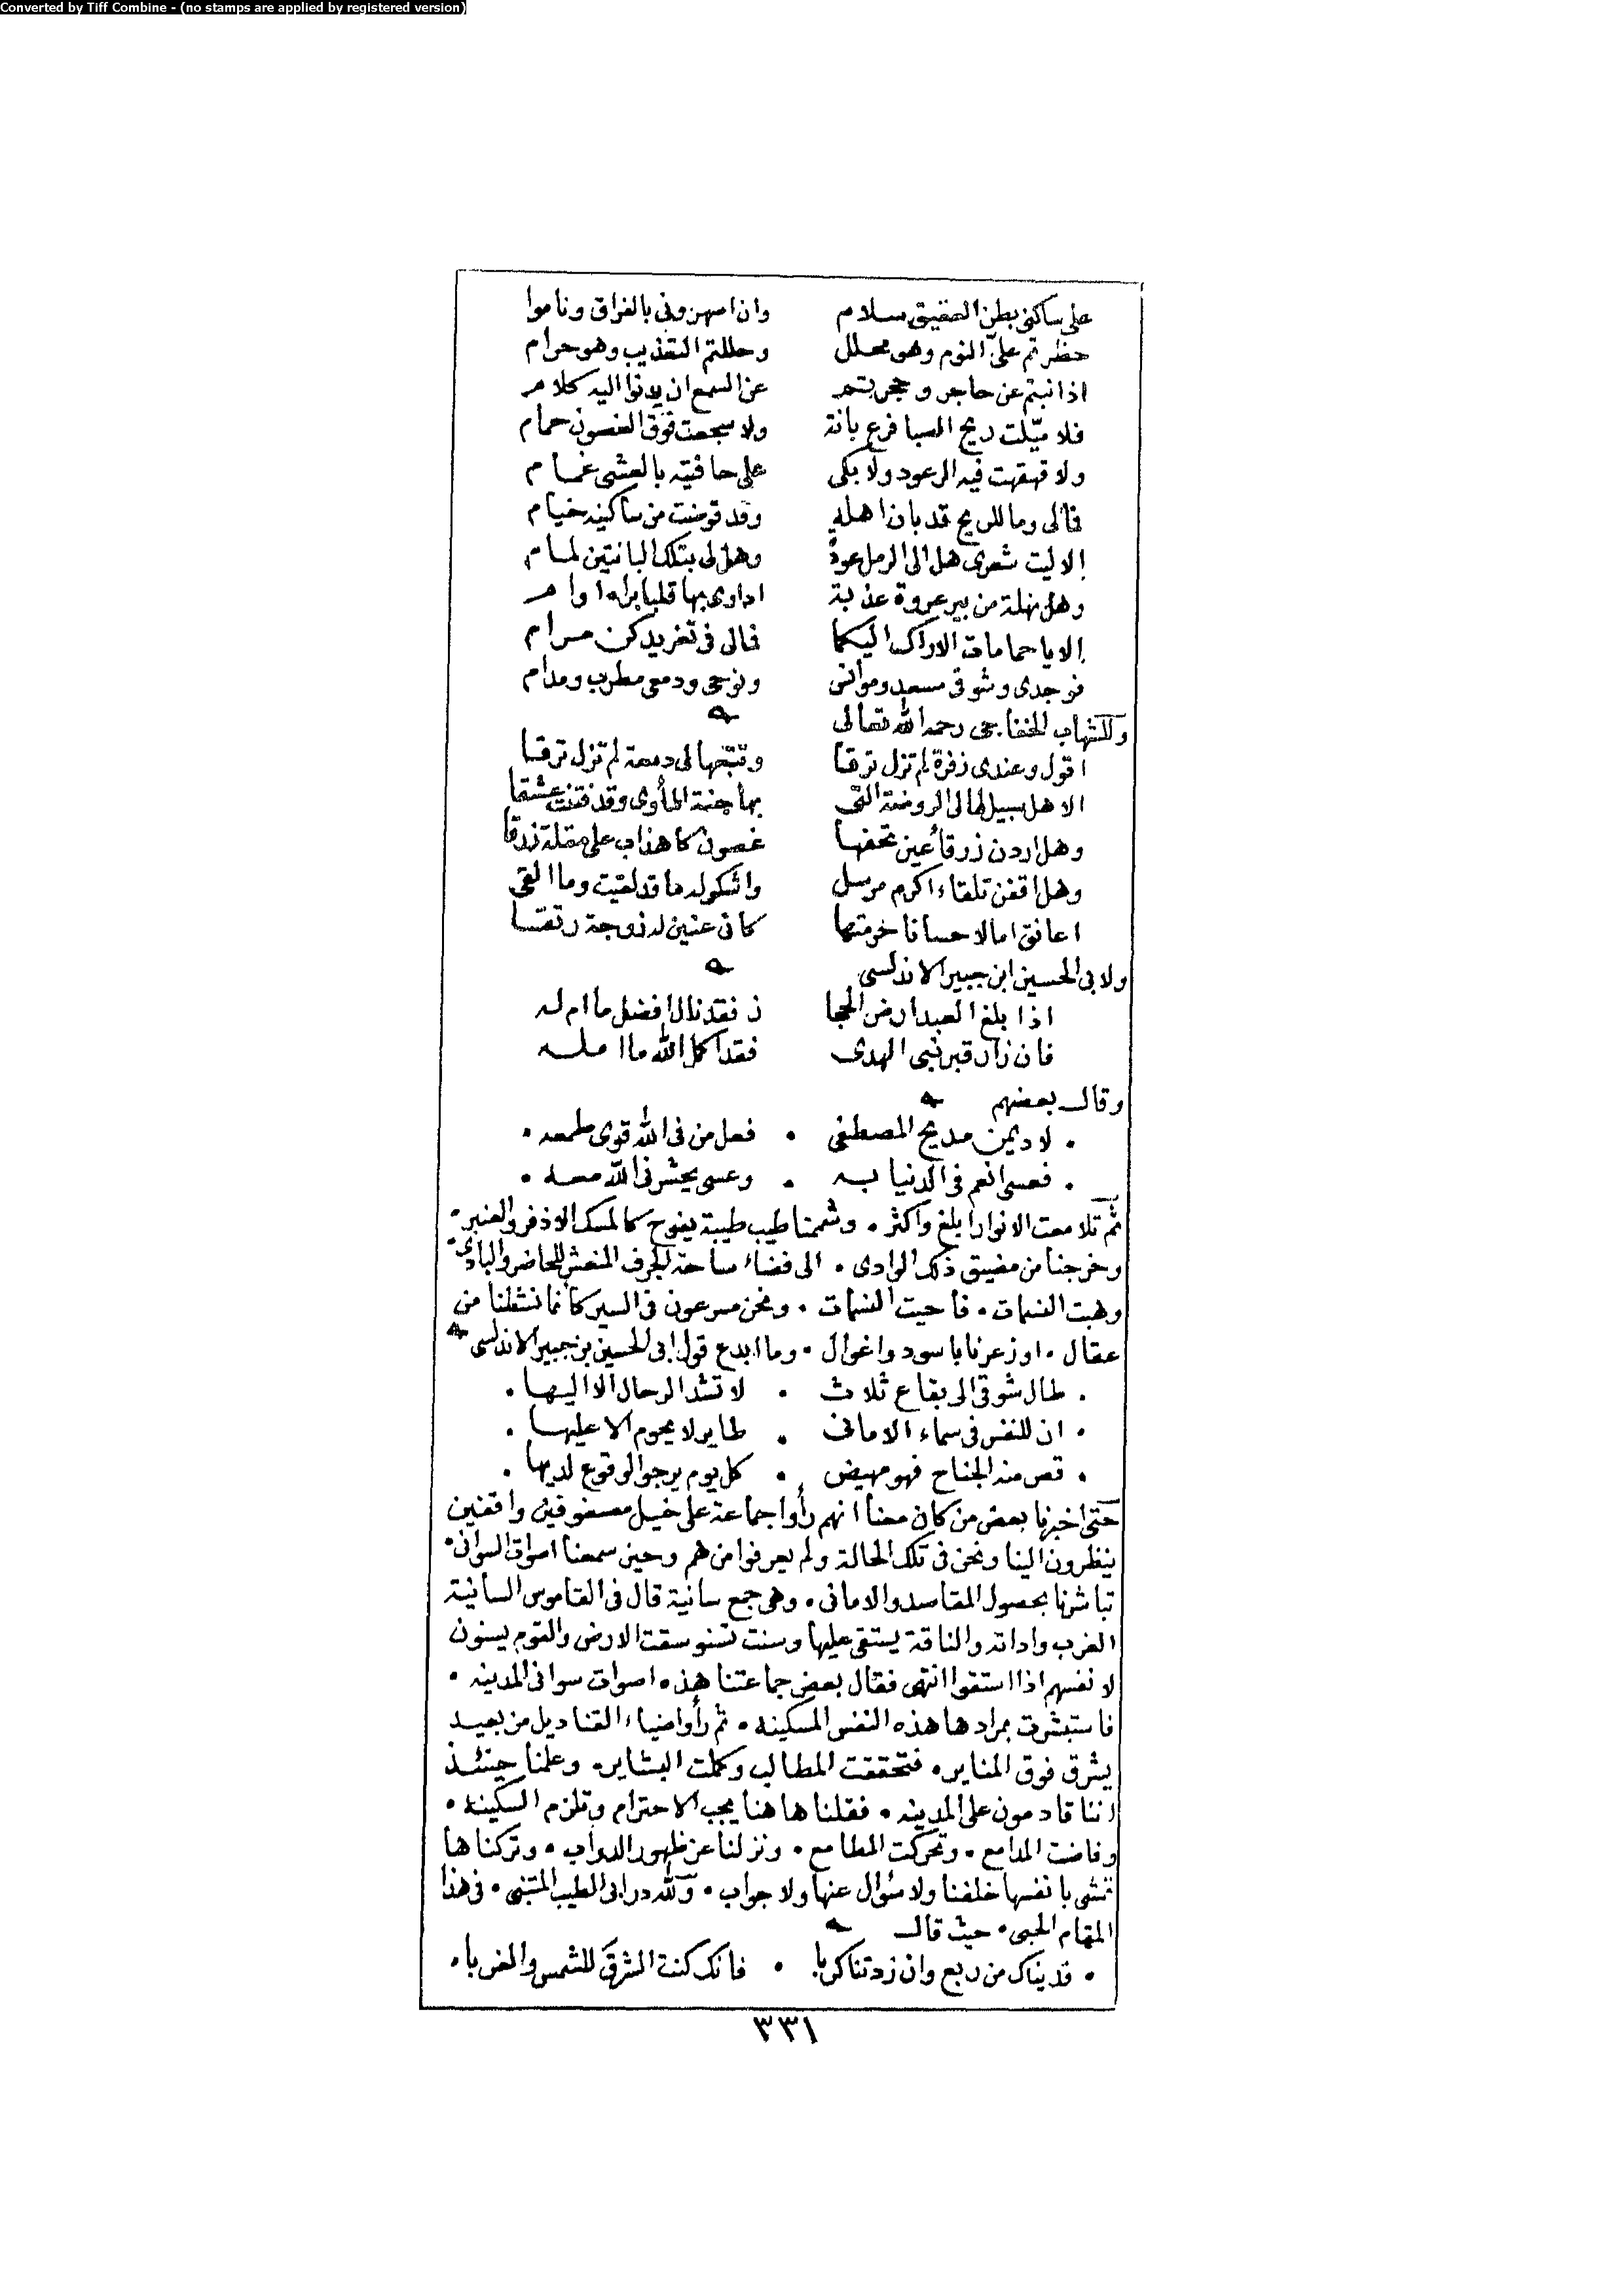 Converted by Tiff Combine - (no stamps are applied by registered version)
على ساكنى بطن العقيق سلام وان اسهرونى بالفراق وناموا
حظرتم علىّ النوم وهو محلل وحللتم التعذيب وهو حرام
اذا نبتم عن حاجر وحجرتم عن السمع ان يدنوا اليه كلام
فلا ميّلت ريح الصبا فرع بانة ولا سجعت فوق الغصون حمام
ولا قهقهت فيه الرعود ولا بكى على حافيته بالعشى غمام
فالى وما للربع قد بان اهله وقد قوضت من ساكنيه خيام
الا ليت شعرى هل الى الرمل عودة وهل لى بتلك البانتين لمام
وهل نهلة من بير عروة عذبة اداوى بها قلبا براه اوام
الا يا حمامات الاراك اليكما فمالى فى تغريدكن مرام
فوجدى وشوقى مسعد وموانس ونوحى ودمعى مطرب ومدام
وللشهاب الخفاجى رحمه الله تعالى
اقول وعندى زفرة لم تزل ترقا وتتبعها لى دمعة لم تزل ترقا
الا هل سبيل لى الى الروضة التى بها جنة المأوى وقد فتنت عشقا
وهل اردن زرقا عين تحفها غصون كاهداب على مقلة زرقا
وهل اقفن تلقاء اكرم مرسل واشكو له ما قد لقيت وما القى
اعانق امالا حسانا حرمتها كانى عنين له زوجة رتقا
ولابى الحسين ابن جبير الاندلسى
اذا بلغ العبد ارض الحجا ز فقد نال افضل ما ام له
فان زار قبر نبى الهدى فقد اكمل الله ما امله
وقال بعضهم
لا ديمن مديح المصطفى • فعل من فى الله قوى طمعه •
• فعسى انعم فى الدنيا به • وعسى يحشرنى الله معه •
ثم تلامعت الانوار ابلغ واكثر • وشممنا طيب طيبة يفوح كالمسك الاذفر والعنبر •
وخرجنا من مضيق ذلك الوادى • الى فضاء ساحة الجرف المنعش للحاضر والبادى •
وهبت النسمات • فاحيت النسمات • ونحن مسرعون فى السير كأنما نشطنا من
عقال • او زعرنا باسود واغوال • وما ابدع قول ابى الحسين بن جبير الاندلسى
• طال شوقى الى بقاع ثلاث • لا تشد الرحال الا اليها •
• ان للنفس فى سماء الامانى • طاير لا يحوم الا عليها •
• قص منه الجناح فهو مهيض • كل يوم يرجو الوقوع لديها •
حتى اخبرنا بعض من كان معنا انهم رأوا جماعة على خيل مصفوفين واقفين
ينظرون الينا ونحن فى تلك الحالة ولم يعرفوا من هم وحين سمعنا اصوات السوانى •
تباشرنا بحصول المقاصد والامانى • وهى جمع سانية قال فى القاموس السانية
الغرب واداته والناقة يستقى عليها وسنت تسنو سقت الارض والقوم يسنون
لانفسهم اذا استقوا انتهى فقال بعض جماعتنا هذه اصوات سوانى المدينه •
فاستبشرت بمرادها هذه النفس المسكينه • ثم رأوا ضياء القناديل من بعيد
يشرق فوق المناير • فتحققت المطالب وكملت البشاير • وعلمنا حينئذ
اننا قادمون على المدينه • فقلنا هاهنا يجب الاحترام وتلزم السكينه •
وفاضت المدامع • وتحركت المطامع • ونزلنا عن ظهور الدواب • وتركناها
تمشى بانفسها خلفنا ولا سؤال عنها ولا جواب • ولله در ابى الطيب المتنبى • فى هذا
المقام الحبى • حيث قال
• فديناك من ربع وان زدتنا كربا • فانك كنت الشرق للشمس والغربا •
٣٣١